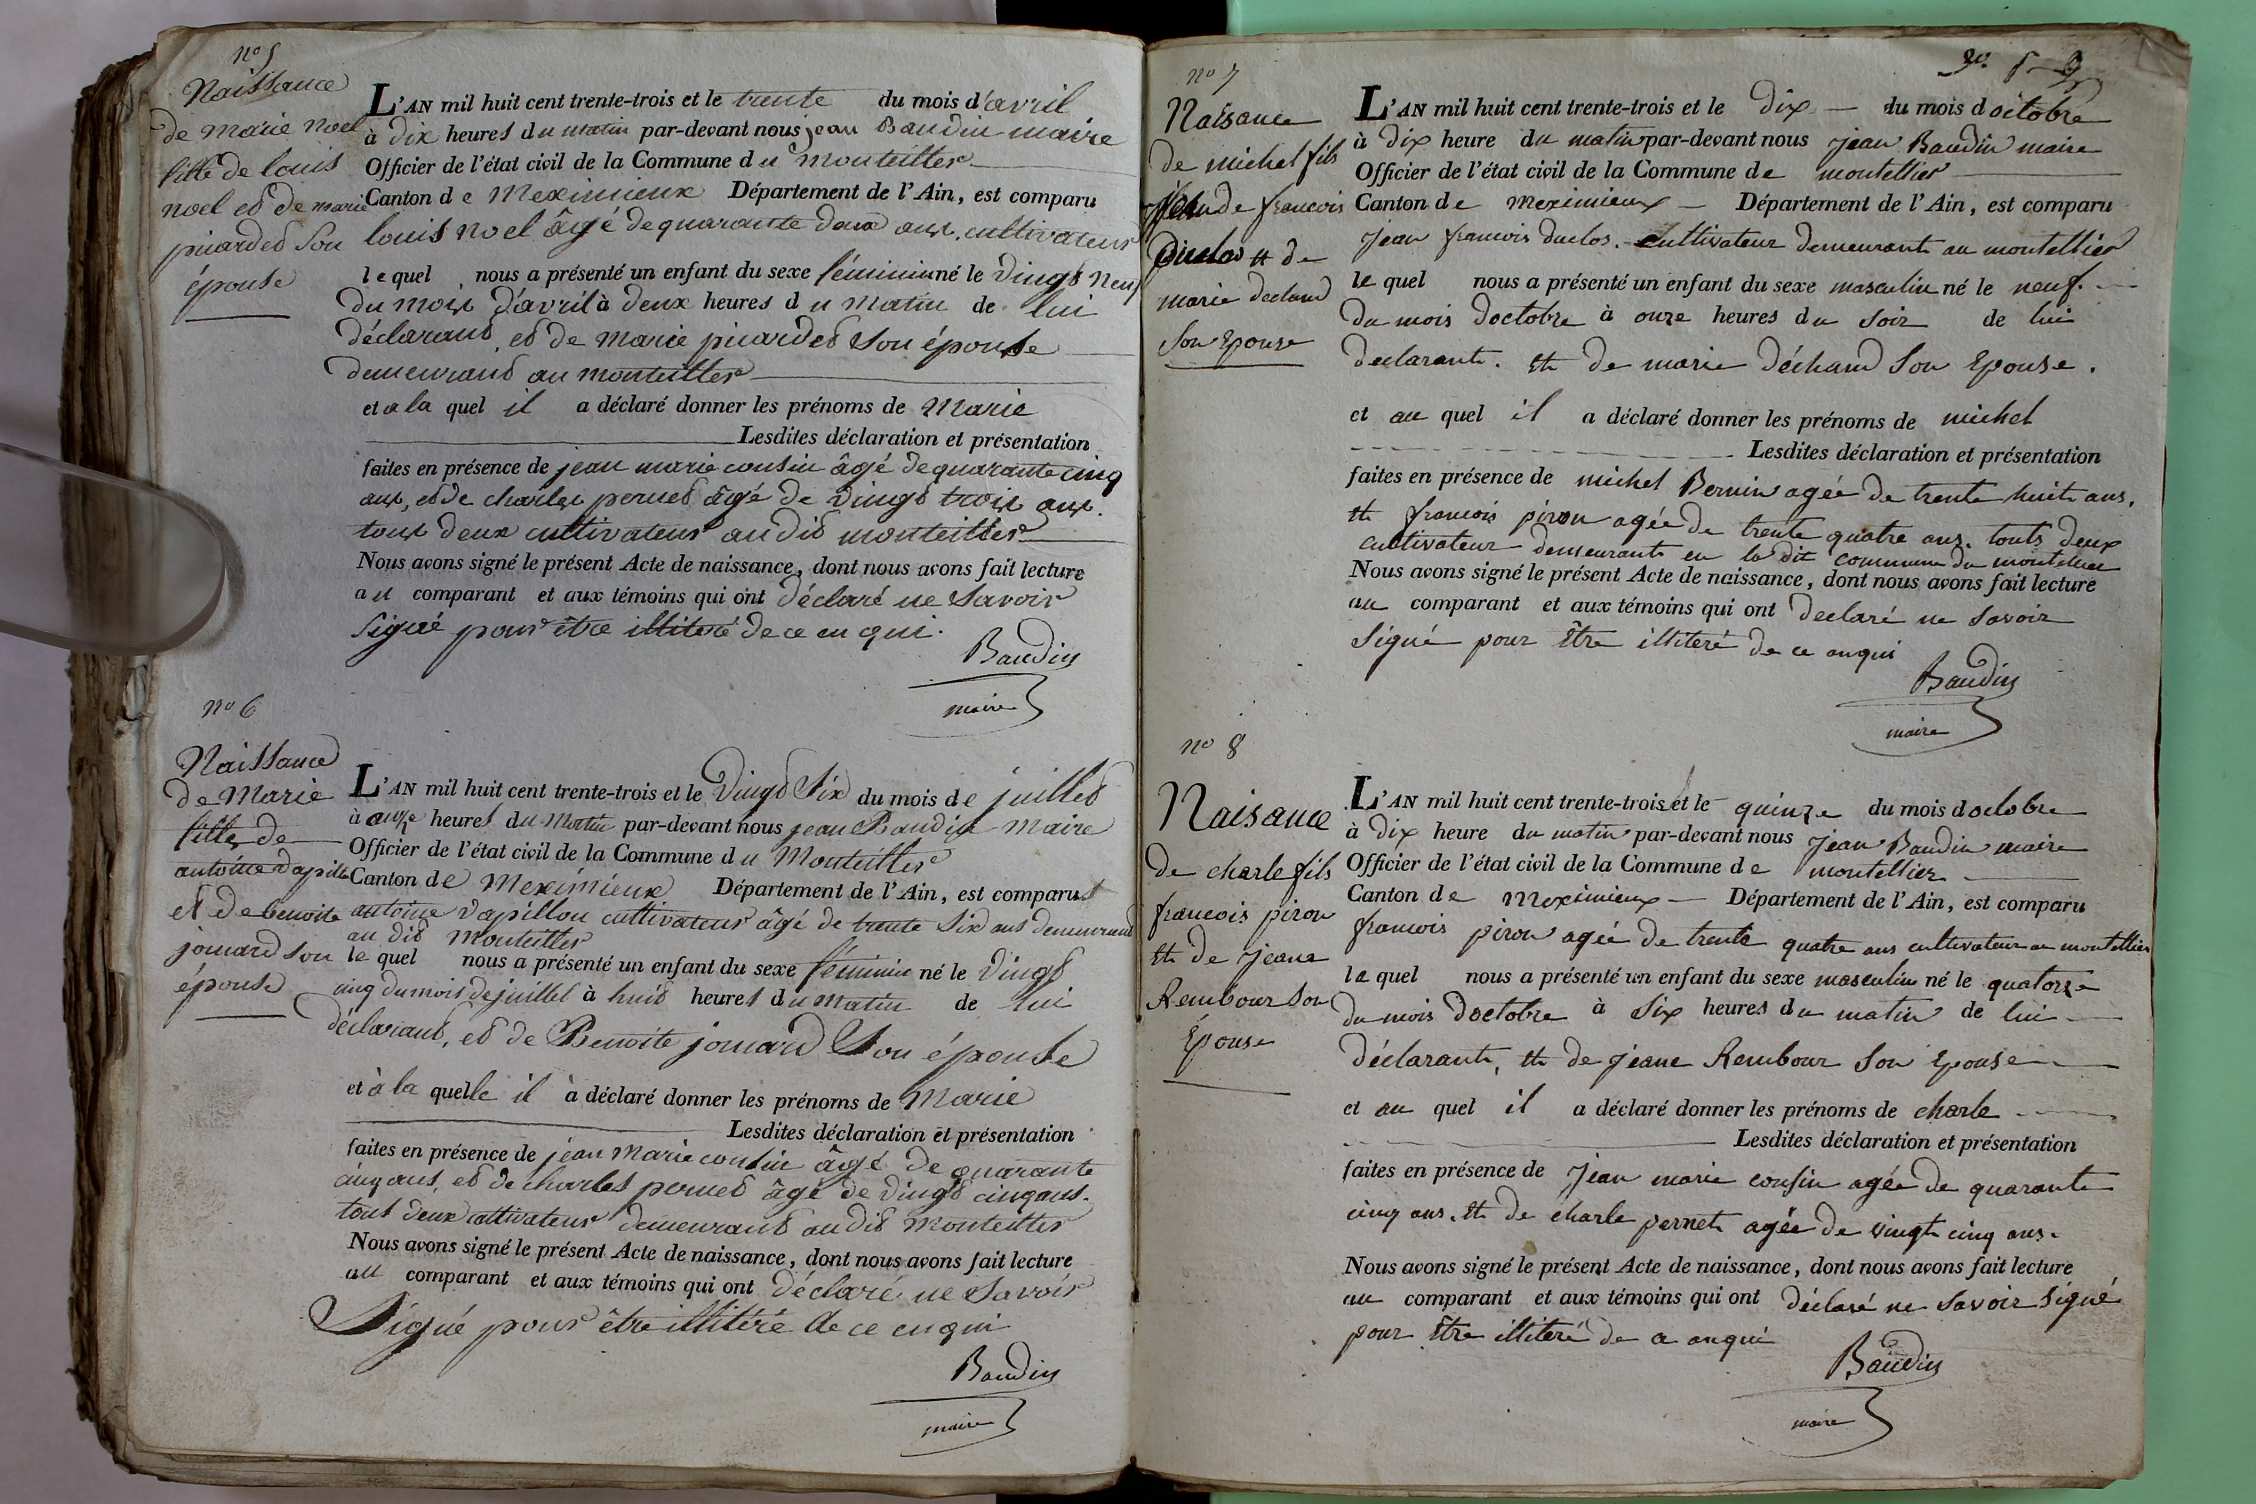 nº 5
Naissance
de Marie Noel
fille de louis
noel et de marie
picardet son
épouse
L'AN mil huit cent trente-trois et le trente du mois d'avril
à dix heures du matin par-devant nous jean Baudin maire
Officier de l'état civil de la Commune du Monteiller
Canton de Meximieux Département de l'Ain, est comparu
louis noel âgé de quarante deux ans, cultivateur
lequel nous a présenté un enfant du sexe féminin né le vingt neuf
du mois d'avril à deux heures du matin de lui
déclarant, et de marie picardet son épouse
demeurant au monteiller
et a la quel il a déclaré donner les prénoms de Marie
Lesdites déclaration et présentation
faites en présence de jean marie cousin âgé de quarante cinq
ans, et de charles pernet âgé de vingt trois ans.
tous deux cultivateur audit monteiller
Nous avons signé le présent Acte de naissance, dont nous avons fait lecture
au comparant et aux témoins qui ont déclaré ne savoir
signé pour être illiteré de ce enqui.
Baudin
maire
nº 6
Naissance
de Marie
fille de
antoine dapillon
et de benoite
jomard son
épouse
L'AN mil huit cent trente-trois et le vingt six du mois de juillet
à onze heures du matin par-devant nous jean Baudin Maire
Officier de l'état civil de la Commune du Monteiller
Canton de Meximieux Département de l'Ain, est comparut
antoine dapillon cultivateur âgé de trente six ans demeurant
au dit Monteiller
le quel nous a présenté un enfant du sexe féminin né le vingt
cinq du mois de juillet à huit heures du matin de lui
déclarant, et de Benoite jomard son épouse
et à la quelle il à déclaré donner les prénoms de Marie
Lesdites déclaration et présentation
faites en présence de jean Marie cousin âgé de quarante
cinq ans, et de charles pernet âgé de vingt cinq ans.
tous deux cultivateur demeurant audit Monteiller
Nous avons signé le présent Acte de naissance, dont nous avons fait lecture
au comparant et aux témoins qui ont déclaré ne savoir
Signé pour être illitéré de ce enqui
Baudin
maire
nº 7
Naisance
de michel fils
de francois
Duclos et de
marie dechand
son Epouse
L'AN mil huit cent trente-trois et le dix du mois doctobre
à dix heure du matin par-devant nous Jean Baudin maire
Officier de l'état civil de la Commune de montellier
Canton de meximieux Département de l'Ain, est comparu
Jean francois duclos. cultivateur demeurant au montellier
le quel nous a présenté un enfant du sexe masculin né le neuf.
du mois doctobre à onze heures du soir de lui
declarant. et de marie déchand son Epouse.
et au quel il a déclaré donner les prénoms de michel
Lesdites déclaration et présentation
faites en présence de michel Bernin agée de trente huit ans,
et francois piron agée de trente quatre ans. touts deux
cultivateur demeurant en la dit commune du montellier
Nous avons signé le présent Acte de naissance, dont nous avons fait lecture
au comparant et aux témoins qui ont declaré ne savoir
signé pour être illiteré de ce anqui
Baudin
maire
nº 8
Naisance
de charle fils
francois piron
et de jeane
Rembour son
Epouse
L'AN mil huit cent trente-trois et le quinze du mois doctobre
à dix heure du matin par-devant nous Jean Baudin maire
Officier de l'état civil de la Commune de montellier
Canton de meximieux Département de l'Ain, est comparu
francois piron agée de trente quatre ans cultivateur au montellier
le quel nous a présenté un enfant du sexe masculin né le quatorze
du mois doctobre à six heures du matin de lui
déclarant, et de jeane Rembour son Epouse
et au quel il a déclaré donner les prénoms de charle
Lesdites déclaration et présentation
faites en présence de Jean marie cousin agée de quarante
cinq ans. et de charle pernet agée de vingt cinq ans.
Nous avons signé le présent Acte de naissance, dont nous avons fait lecture
au comparant et aux témoins qui ont déclaré ne savoir signé
pour être illiteré de ce anqui
Baudin
maire